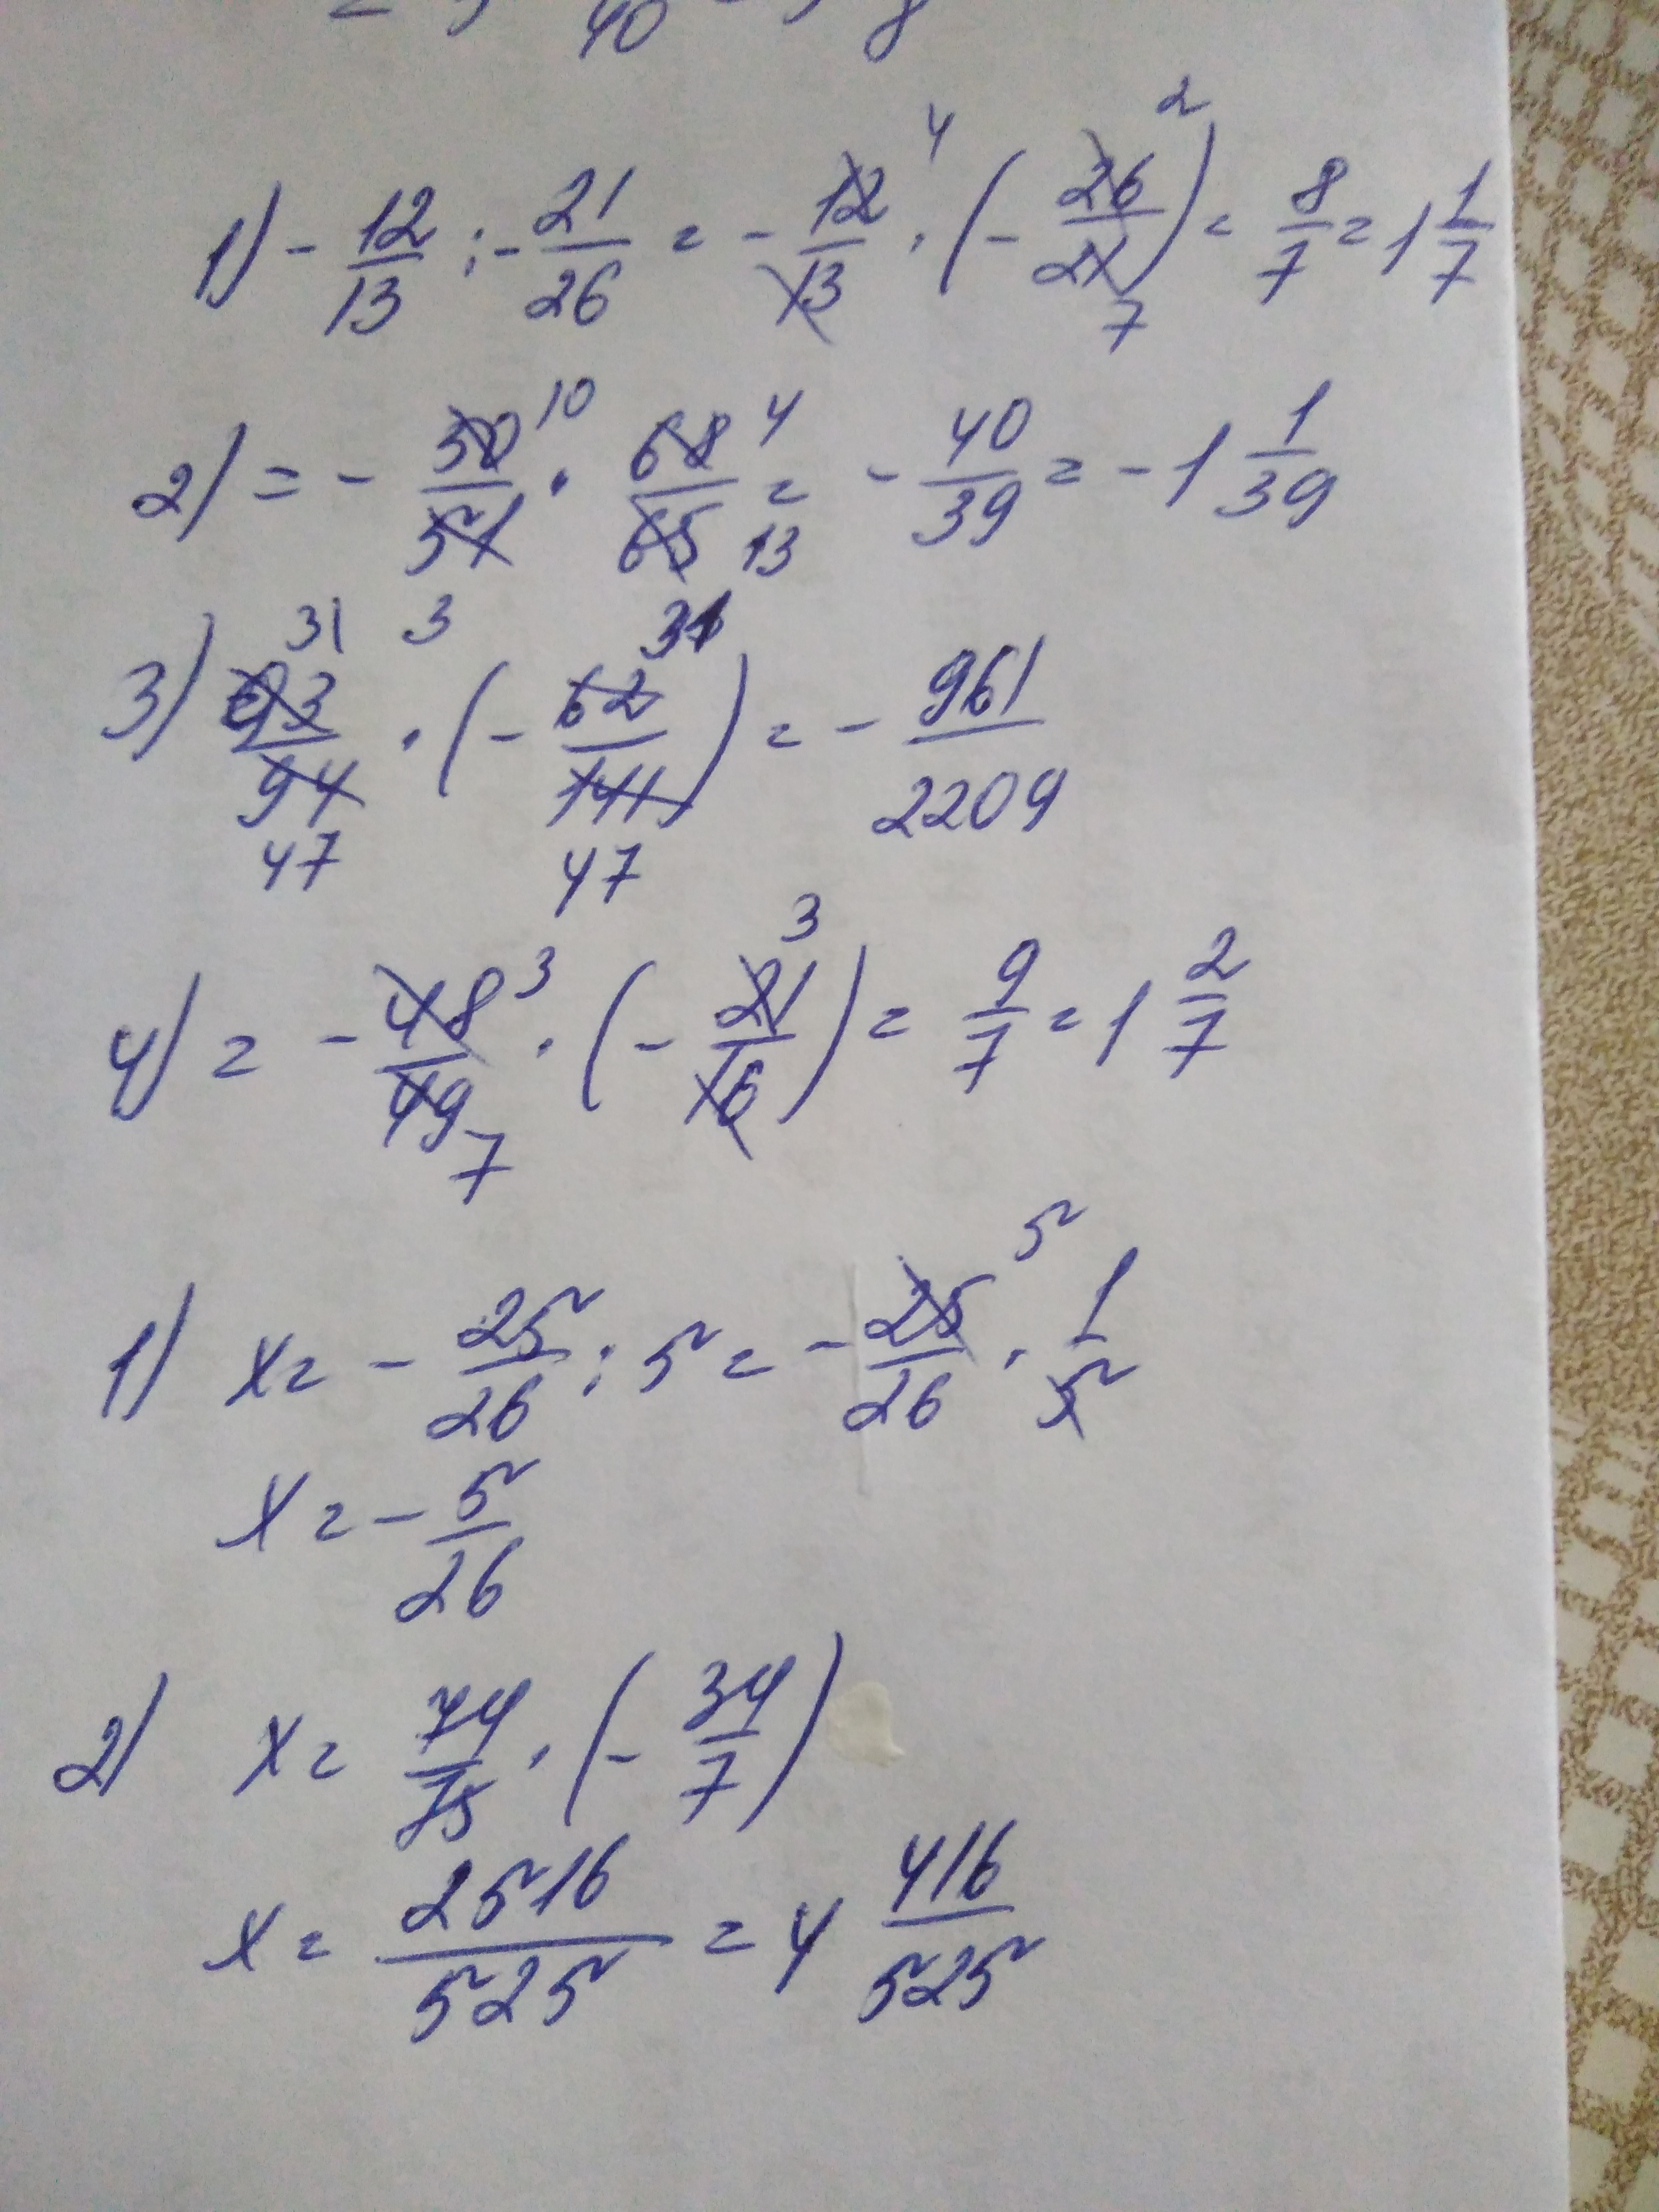 40 8
4 2
1) - 12/13 : - 21/26 = - 12/13 · (- 26/21) = 8/7 = 1 1/7
7
10 4
2) = - 50/51 · 68/65 = - 40/39 = - 1 1/39
3 13
31 31
3) 93/94 · (- 62/141) = - 961/2209
47 47
3 3
4) = - 48/49 · (- 21/16) = 9/7 = 1 2/7
7
5
1) x = - 25/26 : 5 = - 25/26 · 1/5
x = - 5/26
2) x = 74/75 · (- 34/7)
x = 2516/525 = 4 416/525